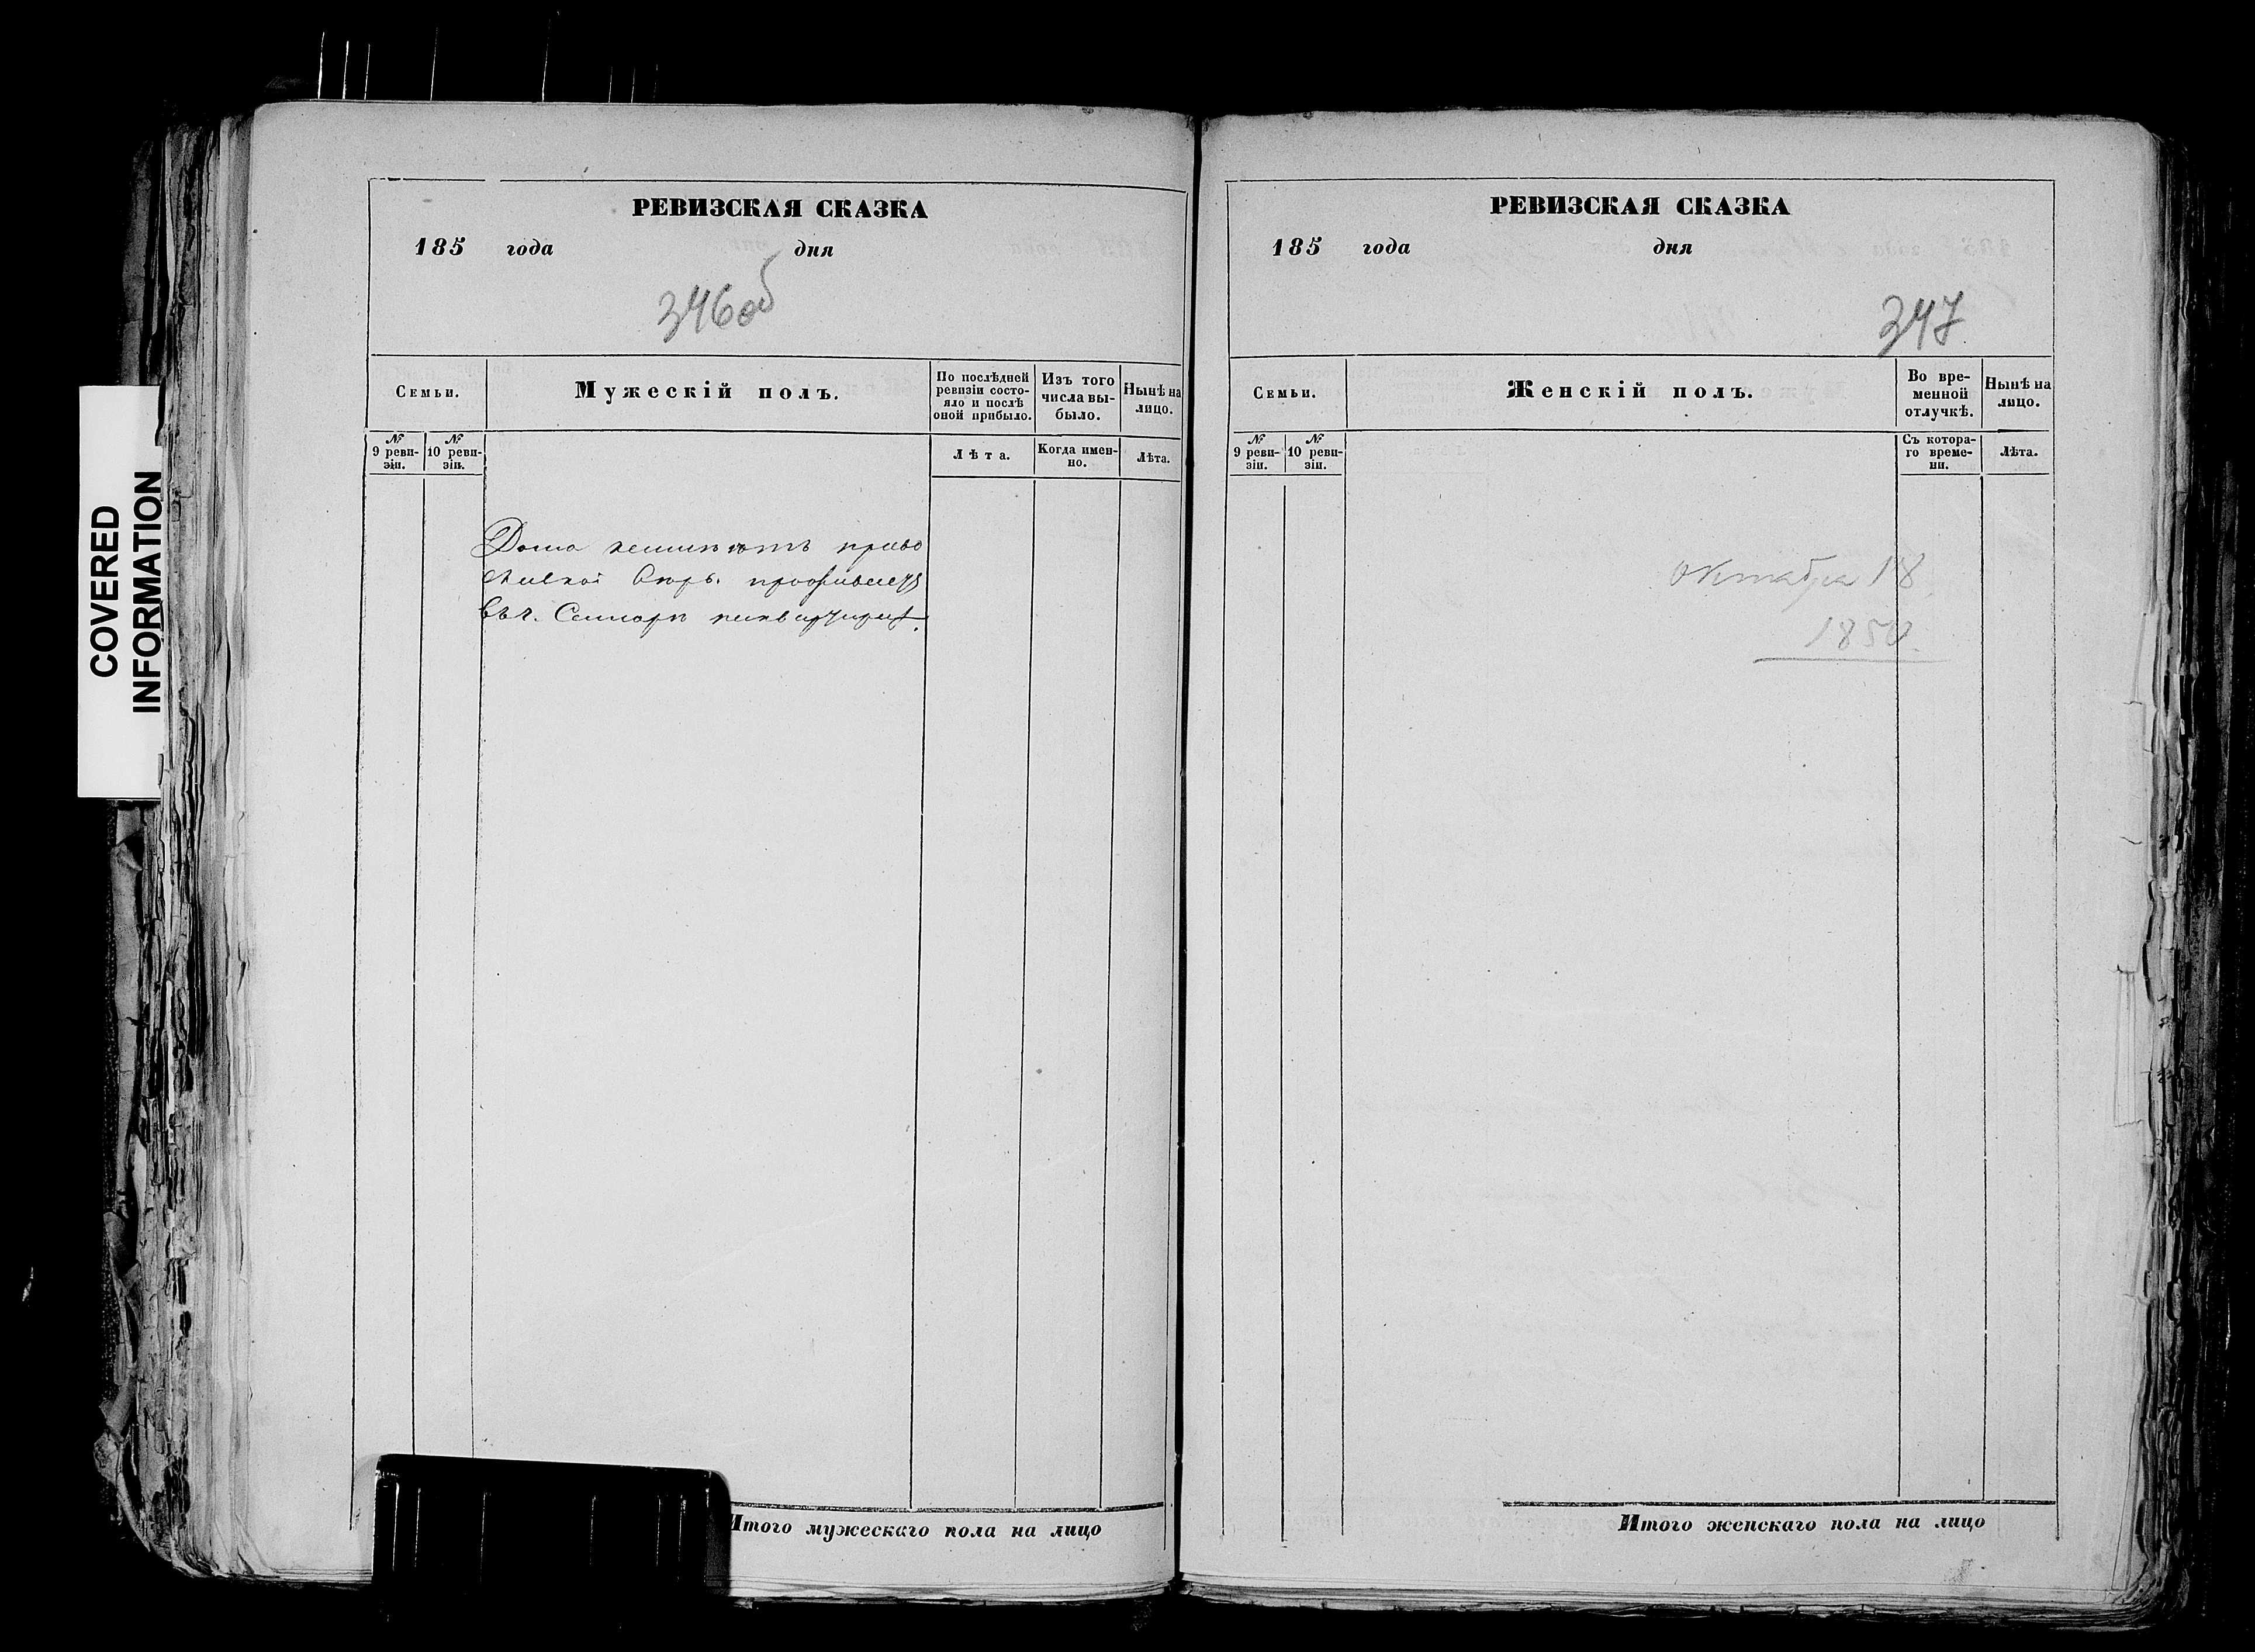 COVERED
INFORMATION
РЕВИЗСКАЯ СКАЗКА
185 года дня
346об
Семьи.
Мужескій полъ.
По послѣдней
ревизіи состо-
яло и послѣ
оной прибыло.
Изъ того
числа вы-
было.
Нынѣ на
лицо.
№
9 реви-
зіи.
№
10 реви-
зіи.
Лѣта.
Когда имен-
но.
Лѣта.
Итого мужескаго пола на лицо
РЕВИЗСКАЯ СКАЗКА
185 года дня
347
Семьи.
Женскій полъ.
Во вре-
менной
отлучкѣ.
Нынѣ на
лицо.
№
9 реви-
зіи.
№
10 реви-
зіи.
Съ котора-
го време-
ни.
Лѣта.
октября 18
1850.
Итого женскаго пола на лицо